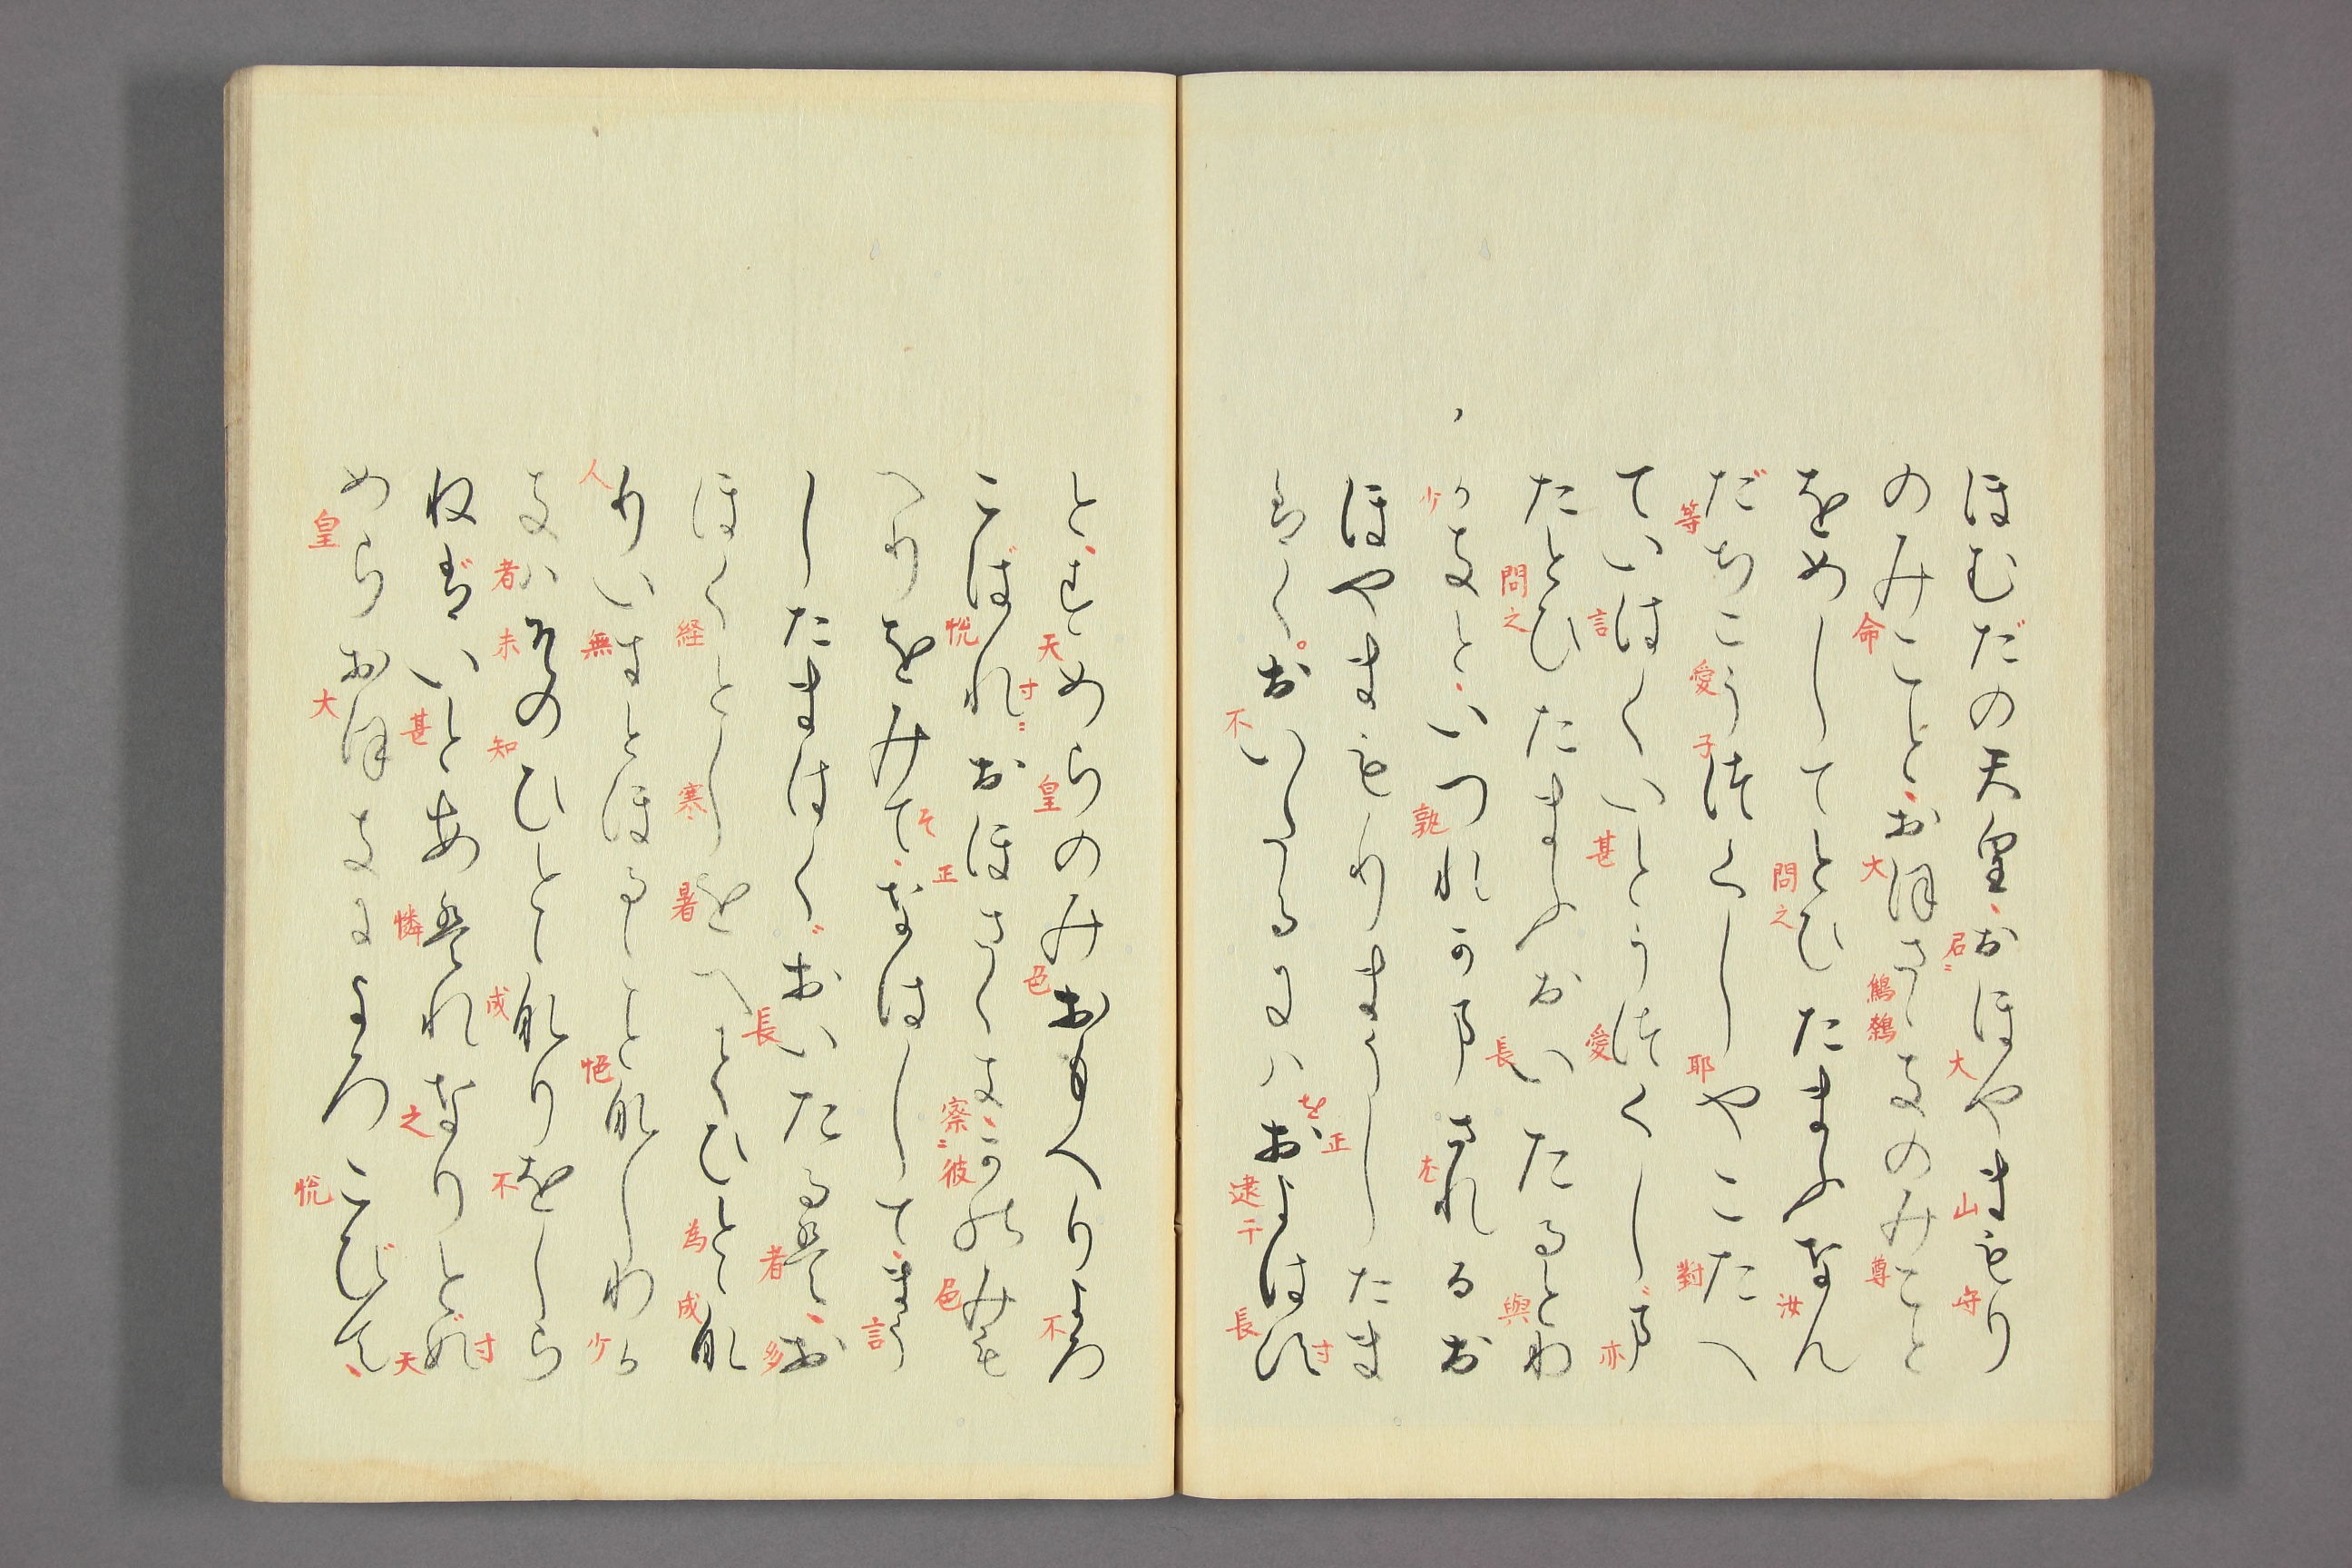 ほむだの天皇おほやまもり
君大山守
のみことおほさゝきのみこと
命大鷦鷯尊
をめしてとひたまふなん
問之汝
だちこうつくしやこたへ
等愛子耶對
ていはくいとうつくしまた
言甚愛亦
たとひたまふおいたるとわ
問之長與
かきといつれかまされるお
少孰
ほやまもりまうしたま
正
はくおいたるにハおよはす
不逮于長
とすめらのみおもへりよろ
天皇色不
おほさゝきかのみも
悦正察彼色
へりをみて
言
したまはくおいたるはお
長者多
ほくとしをへてひととな
経寒暑為成
りいまとほることなしわか
人無悒少
きハそのひととなりをしら
者未知成不
ねばいとあはれなりとす
甚憐之天
めらおほきによろこびて
皇大悦